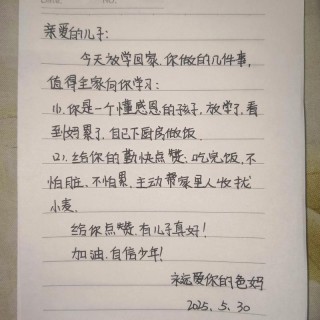 亲爱的儿子：
今天放学回家，你做的几件事，
值得全家向你学习：
(1)、你是一个懂感恩的孩子，放学了，看
到妈累了，自己下厨房做饭．
(2)、给你的勤快点赞：吃完饭，不
怕脏、不怕累，主动帮家里人收找
小麦．
给你点赞，有儿子真好！
加油，自信少年！
永远爱你的爸妈
2025．5．30